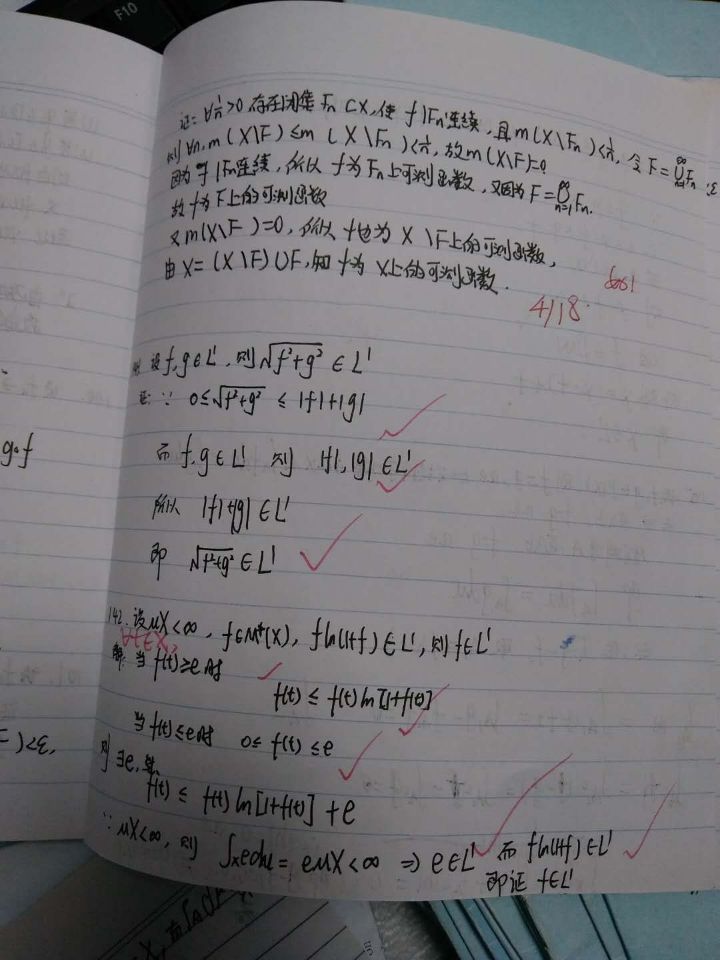 F10
证: ∀1/n>0 存在闭集 Fn⊂X, 使 f|Fn连续, 且 m(X\Fn)<1/n, 令 F=⋃_{n=1}^∞ Fn,
则 ∀n, m(X\F)≤m(X\Fn)<1/n, 故 m(X\F)=0
因为 f|Fn连续, 所以 f为 Fn上可测函数, 又因为 F=⋃_{n=1}^∞ Fn.
故 f为 F上的可测函数
又 m(X\F)=0, 所以 f也为 X\F上的可测函数,
由 X=(X\F)∪F, 知 f为 X上的可测函数.
4118.
设 f,g∈L¹, 则 √(f²+g²)∈L¹
证: ∵ 0≤√(f²+g²)≤|f|+|g|
而 f,g∈L¹ 则 |f|,|g|∈L¹
g∘f
所以 |f|+|g|∈L¹
即 √(f²+g²)∈L¹
142. 设 μX<∞, f∈M⁺(X), fln(1+f)∈L¹, 则 f∈L¹
∀t∈X,
解: 当 f(t)≥e时
f(t)≤f(t)ln[1+f(t)]
当 f(t)≤e时 0≤f(t)≤e
)<ε,
则 ∃e, 使
f(t)≤f(t)ln[1+f(t)]+e
∵ μX<∞, 则 ∫ₓedμ=eμX<∞ ⇒ e∈L¹ 而 fln(1+f)∈L¹
即证 f∈L¹